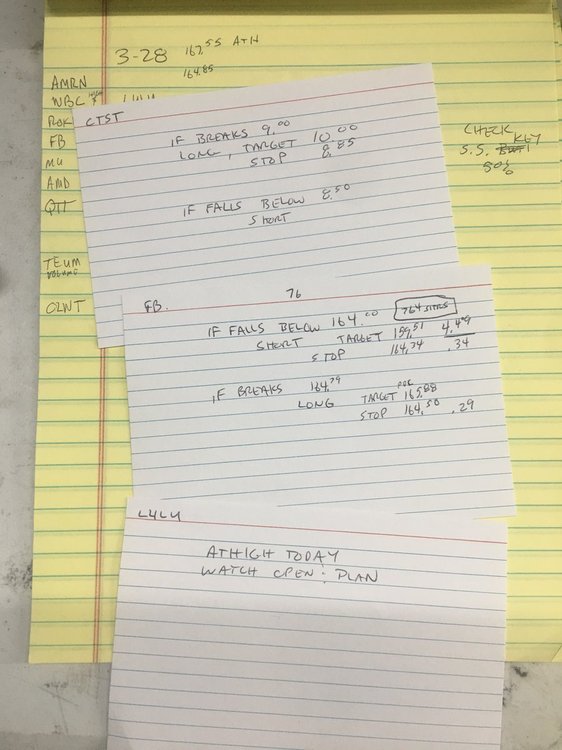 3-28 167.55 ATH
164.85
AMRN
WBC
ROK
FB
MU
AMD
QTT
TEUM
VOLUME
OZWT
CHECK
S.S. KEY
50%
CTST
IF BREAKS 9.00
LONG, TARGET 10.00
STOP 8.85
IF FALLS BELOW 8.50
SHORT
FB. 76
IF FALLS BELOW 164.00 764 SHRS
SHORT TARGET 159.51 4.49
STOP 164.34 .34
IF BREAKS 164.79
LONG TARGET 165.88
STOP 164.50 .29
LULU
ATHIGH TODAY
WATCH OPEN: PLAN